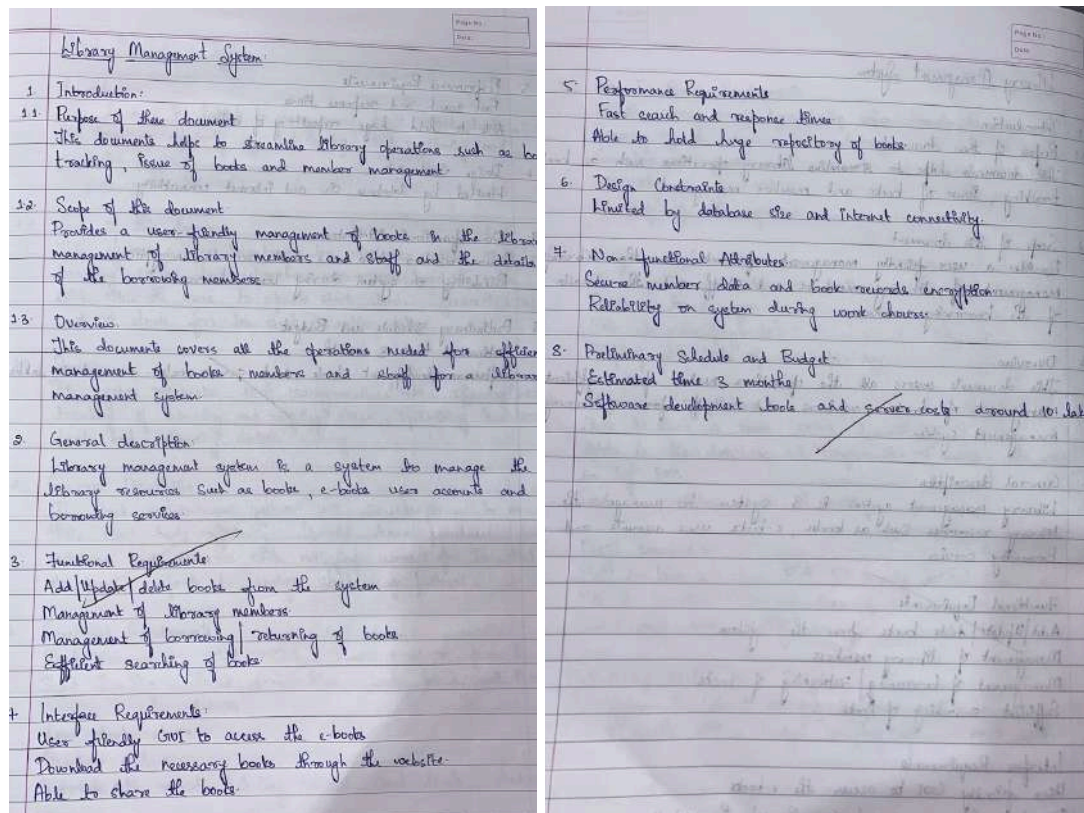 Page No:
Date:
Library Management System
1 Introduction:
1.1. Purpose of these document
This documents helps to streamline library operations such as bo
tracking, issue of books and member management.
1.2. Scope of this document
Provides a user-friendly management of books in the librar
management of library members and staff and the details
of the borrowing members.
1.3. Overview
This documents covers all the operations needed for efficien
management of books, members and staff for a librar
management system.
2. General description:
Library management system is a system to manage the
library resources such as books, e-books user accounts and
borrowing services.
3. Functional Requirements:
Add/Update/delete books from the system
Management of library members.
Management of borrowing/returning of books
Efficient searching of books.
Interface Requirements:
User friendly GUI to access the e-books
Download the necessary books through the website.
Able to share the books.
Page No:
Date:
5. Performance Requirements
Fast search and response times
Able to hold huge repository of books.
6. Design Constraints
Limited by database size and internet connectivity.
7. Non-functional Attributes
Secure member data and book records encryption
Reliability on system during work hours.
8. Preliminary Schedule and Budget
Estimated time 3 months
Software development tools and server costs around 10 lak